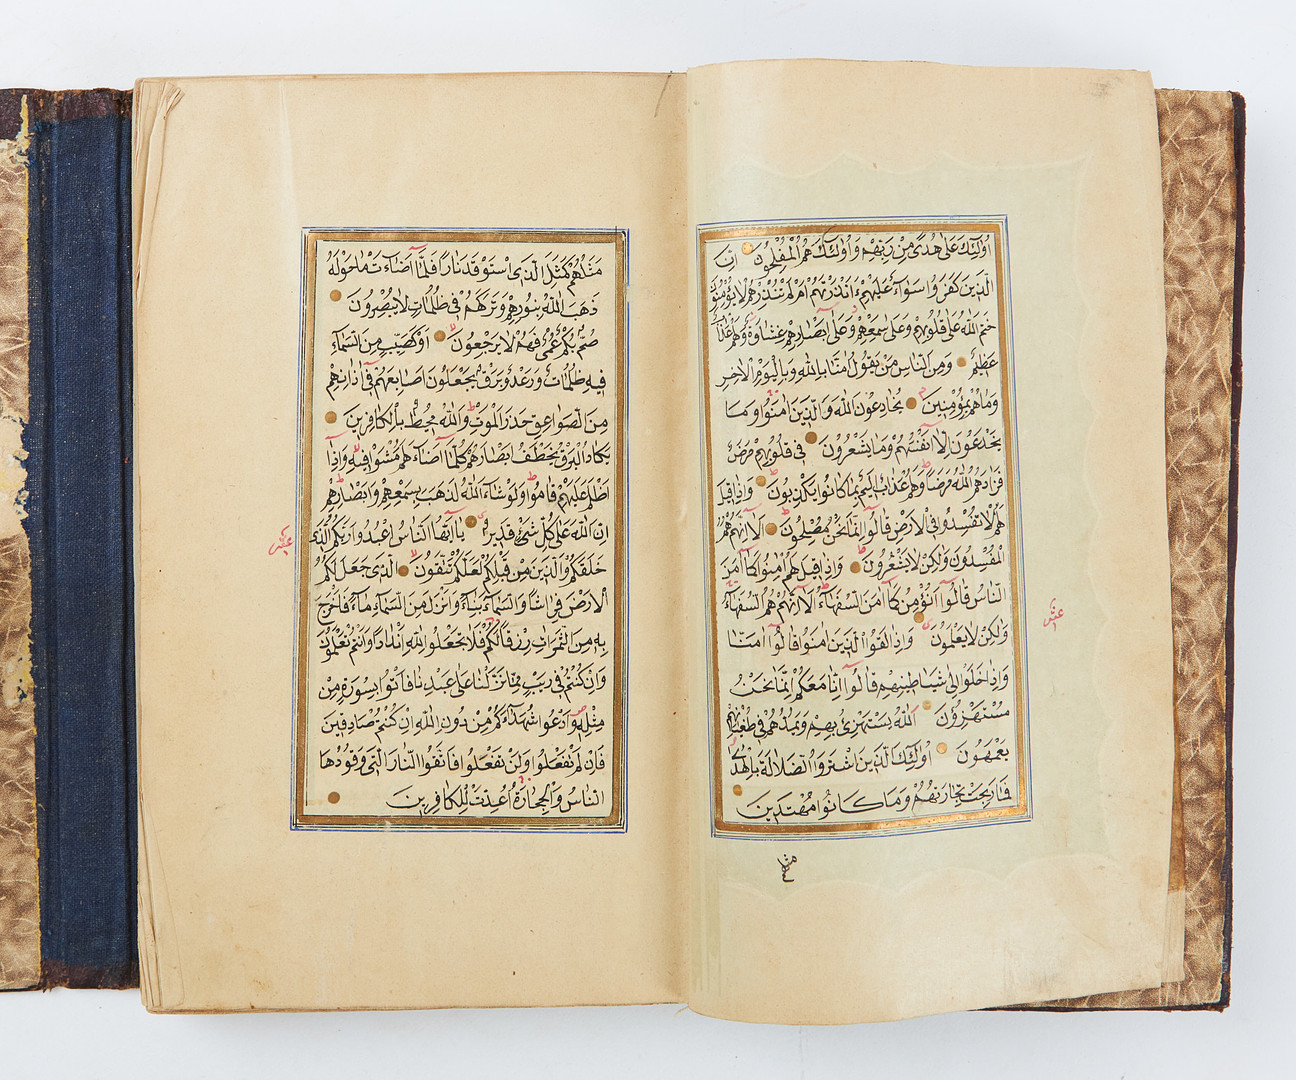 اُولٰئِكَ عَلٰى هُدًى مِنْ رَبِّهِمْ وَاُولٰئِكَ هُمُ الْمُفْلِحُونَ اِنَّ
الَّذِينَ كَفَرُوا سَوَاءٌ عَلَيْهِمْ ءَاَنْذَرْتَهُمْ اَمْ لَمْ تُنْذِرْهُمْ لَا يُؤْمِنُونَ
خَتَمَ اللّٰهُ عَلٰى قُلُوبِهِمْ وَعَلٰى سَمْعِهِمْ وَعَلٰى اَبْصَارِهِمْ غِشَاوَةٌ وَلَهُمْ عَذَابٌ
عَظِيمٌ وَمِنَ النَّاسِ مَنْ يَقُولُ اٰمَنَّا بِاللّٰهِ وَبِالْيَوْمِ الْاٰخِرِ
وَمَا هُمْ بِمُؤْمِنِينَ يُخَادِعُونَ اللّٰهَ وَالَّذِينَ اٰمَنُوا وَمَا
يَخْدَعُونَ اِلَّا اَنْفُسَهُمْ وَمَا يَشْعُرُونَ فِى قُلُوبِهِمْ مَرَضٌ
فَزَادَهُمُ اللّٰهُ مَرَضًا وَلَهُمْ عَذَابٌ اَلِيمٌ بِمَا كَانُوا يَكْذِبُونَ وَاِذَا قِيلَ
لَهُمْ لَا تُفْسِدُوا فِى الْاَرْضِ قَالُوا اِنَّمَا نَحْنُ مُصْلِحُونَ اَلَا اِنَّهُمْ هُمُ
الْمُفْسِدُونَ وَلٰكِنْ لَا يَشْعُرُونَ وَاِذَا قِيلَ لَهُمْ اٰمِنُوا كَمَا اٰمَنَ
النَّاسُ قَالُوا اَنُؤْمِنُ كَمَا اٰمَنَ السُّفَهَاءُ اَلَا اِنَّهُمْ هُمُ السُّفَهَاءُ
وَلٰكِنْ لَا يَعْلَمُونَ وَاِذَا لَقُوا الَّذِينَ اٰمَنُوا قَالُوا اٰمَنَّا
عشر
وَاِذَا خَلَوْا اِلٰى شَيَاطِينِهِمْ قَالُوا اِنَّا مَعَكُمْ اِنَّمَا نَحْنُ
مُسْتَهْزِؤُنَ اَللّٰهُ يَسْتَهْزِئُ بِهِمْ وَيَمُدُّهُمْ فِى طُغْيَانِهِمْ
يَعْمَهُونَ اُولٰئِكَ الَّذِينَ اشْتَرَوُا الضَّلَالَةَ بِالْهُدٰى
فَمَا رَبِحَتْ تِجَارَتُهُمْ وَمَا كَانُوا مُهْتَدِينَ
مثلهم
مَثَلُهُمْ كَمَثَلِ الَّذِى اسْتَوْقَدَ نَارًا فَلَمَّا اَضَاءَتْ مَا حَوْلَهُ
ذَهَبَ اللّٰهُ بِنُورِهِمْ وَتَرَكَهُمْ فِى ظُلُمَاتٍ لَا يُبْصِرُونَ
صُمٌّ بُكْمٌ عُمْىٌ فَهُمْ لَا يَرْجِعُونَ اَوْ كَصَيِّبٍ مِنَ السَّمَاءِ
فِيهِ ظُلُمَاتٌ وَرَعْدٌ وَبَرْقٌ يَجْعَلُونَ اَصَابِعَهُمْ فِى اٰذَانِهِمْ
مِنَ الصَّوَاعِقِ حَذَرَ الْمَوْتِ وَاللّٰهُ مُحِيطٌ بِالْكَافِرِينَ
يَكَادُ الْبَرْقُ يَخْطَفُ اَبْصَارَهُمْ كُلَّمَا اَضَاءَ لَهُمْ مَشَوْا فِيهِ وَاِذَا
اَظْلَمَ عَلَيْهِمْ قَامُوا وَلَوْ شَاءَ اللّٰهُ لَذَهَبَ بِسَمْعِهِمْ وَاَبْصَارِهِمْ
اِنَّ اللّٰهَ عَلٰى كُلِّ شَىْءٍ قَدِيرٌ يَا اَيُّهَا النَّاسُ اعْبُدُوا رَبَّكُمُ الَّذِى
عشر
خَلَقَكُمْ وَالَّذِينَ مِنْ قَبْلِكُمْ لَعَلَّكُمْ تَتَّقُونَ اَلَّذِى جَعَلَ لَكُمُ
الْاَرْضَ فِرَاشًا وَالسَّمَاءَ بِنَاءً وَاَنْزَلَ مِنَ السَّمَاءِ مَاءً فَاَخْرَجَ
بِهِ مِنَ الثَّمَرَاتِ رِزْقًا لَكُمْ فَلَا تَجْعَلُوا لِلّٰهِ اَنْدَادًا وَاَنْتُمْ تَعْلَمُونَ
وَاِنْ كُنْتُمْ فِى رَيْبٍ مِمَّا نَزَّلْنَا عَلٰى عَبْدِنَا فَاْتُوا بِسُورَةٍ مِنْ
مِثْلِهِ وَادْعُوا شُهَدَاءَكُمْ مِنْ دُونِ اللّٰهِ اِنْ كُنْتُمْ صَادِقِينَ
فَاِنْ لَمْ تَفْعَلُوا وَلَنْ تَفْعَلُوا فَاتَّقُوا النَّارَ الَّتِى وَقُودُهَا
النَّاسُ وَالْحِجَارَةُ اُعِدَّتْ لِلْكَافِرِينَ